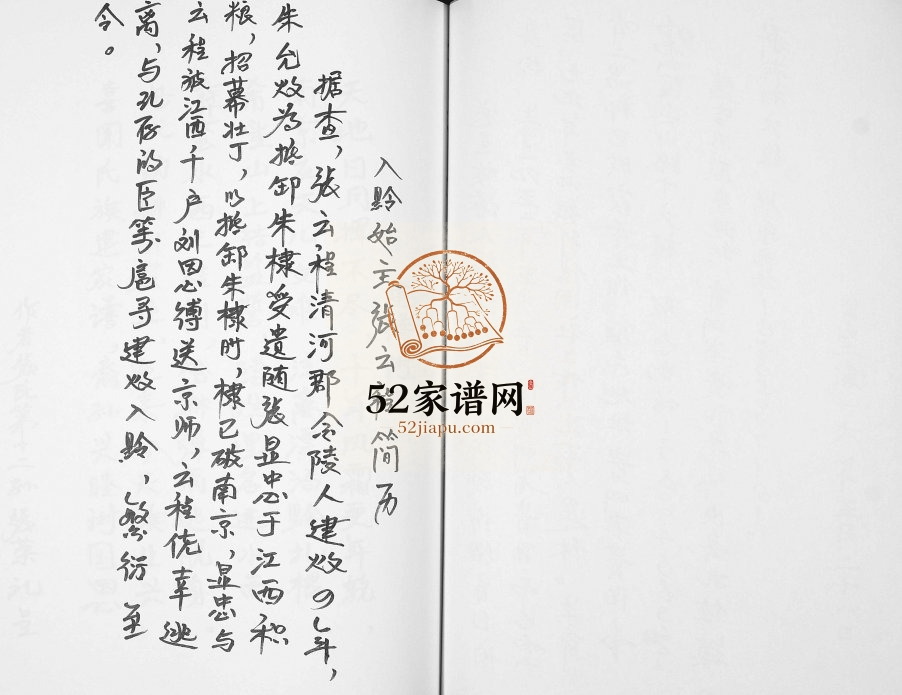 入黔始主张云程简历
据查，张云程清河郡金陵人建炆四年，
朱允炆为抵御朱棣受遗随张显忠于江西积
粮，招幕壮丁，以抵御朱棣时，棣已破南京，显忠与
云程被江西千户刘因心缚送京师，云程侥幸逃
离，与孔存的臣等扈寻建炆入黔，繁衍至
今。
52家谱网
52jiapu.com